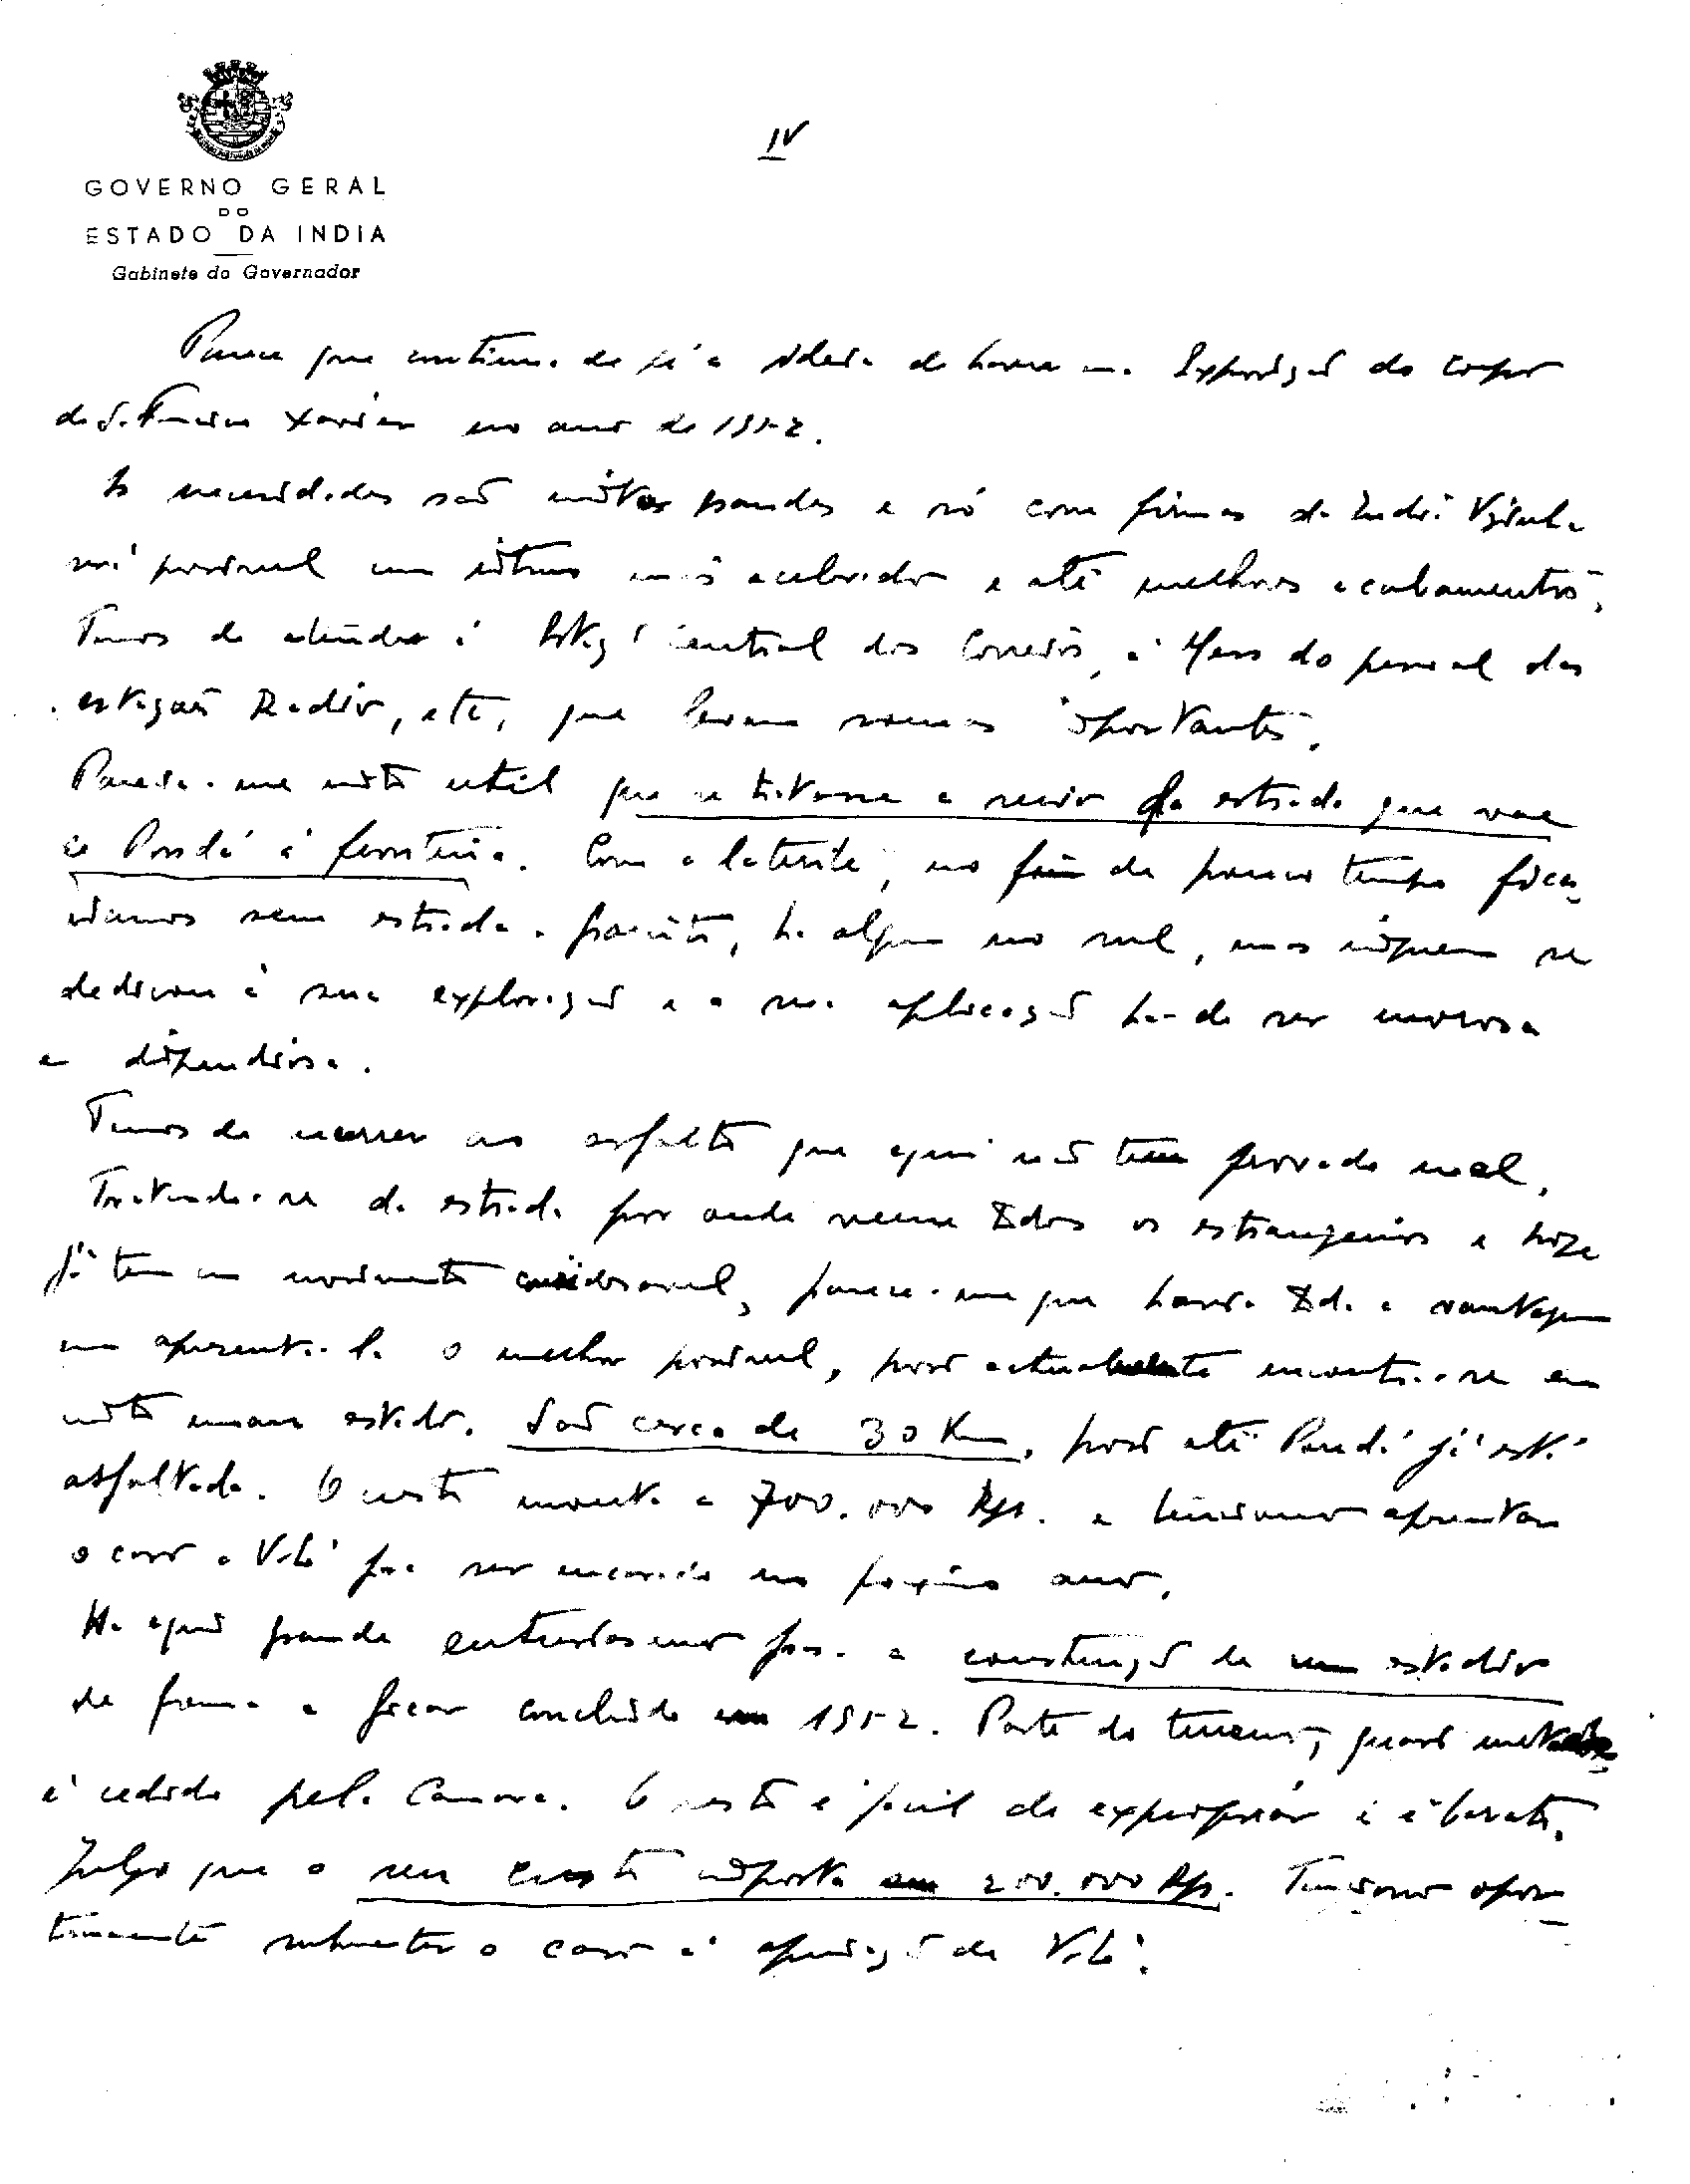 IV
GOVERNO GERAL
DO
ESTADO DA INDIA
Gabinete do Governador
Parece que continua de pé a ideia de haver uma Exposição do corpo
de S. Francisco Xavier no ano de 1952.
As necessidades são muito grandes e só com firmas da India Vizinha
será possivel um ritmo mais acelerado e até melhores acabamentos.
Temos de atender á Estação Central dos Correios, á Mess do pessoal das
estações Radio, etc, que levam somas importantes.
Parecia-me muito util que se tratasse a serio da estrada que vae
de Pondá á fronteira. Com a laterite, no fim de pouco tempo fica-
riamos sem estrada. Granito, ha algum no sul, mas ninguem se
dedicou á sua exploração e a sua aplicação ha-de ser morosa
e dispendiosa.
Temos de recorrer ao asfalto que aqui não tem provado mal.
Tratando-se da estrada por onde veem todos os estrangeiros e hoje
já tem um movimento consideravel, parece-me que haverá toda a vantagem
em apresenta-la o melhor possivel, pois actualmente encontra-se em
muito mau estado. São cerca de 30 Km, pois até Pondá já está
asfaltada. O custo monta a 700.000 Rps. e tencionamos apresentar
o caso a V. para ser encarado no proximo ano.
Ha aqui grande entusiasmo para a construção de um estadio
de forma a ficar concluido em 1952. Parte do terreno, quasi metade
é cedido pela Camara. O resto é facil de expropriar e é barato.
Julgo que o seu custo importa em 200.000 Rps. Tenciono opor-
tunamente submeter o caso á apreciação de V.